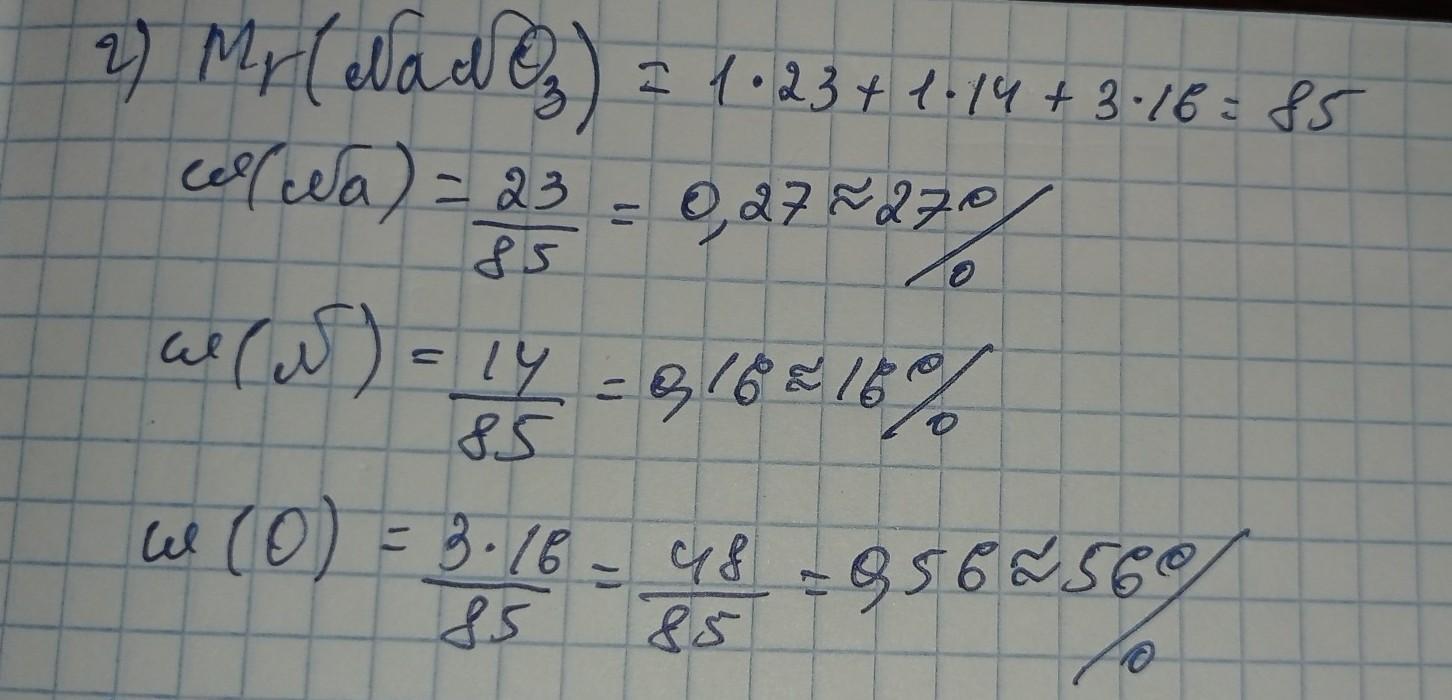 г) Mr(NaNO₃) = 1·23 + 1·14 + 3·16 = 85
ω(Na) = 23/85 = 0,27 ≈ 27%
ω(N) = 14/85 = 0,16 ≈ 16%
ω(O) = 3·16/85 = 48/85 = 0,56 ≈ 56%